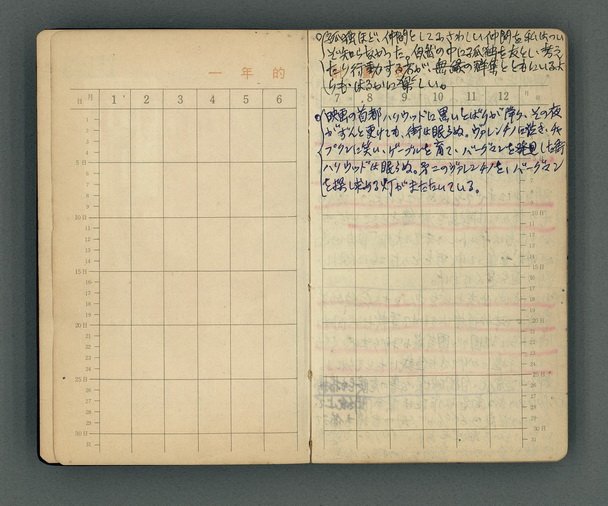 一年的
日 月 1 2 3 4 5 6
1
2
3
4
5日
6
7
8
9
10日
11
12
13
14
15日
16
17
18
19
20日
21
22
23
24
25日
26
27
28
29
30日
31
○孤独ほど、仲間としてふさわしい仲間を私はつい
ぞ知らなかった。自分の中に孤独を友とし考え
たり行動する方が、無縁の群集とともにいるよ
りもはるかに楽しい。
○映画の首都ハリウッドに黒いとばりが降り、その夜
がずんと更けても、街は眠らぬ。ヴァレンチノに泣き、チャ
プリンに笑い、ゲーブルを育て、バーグマンを発見した街
ハリウッドは眠らぬ。第二のヴァレンチノを、バーグマン
を探し求める灯がまたたいている。
7 8 9 10 11 12 月 日
10日
15日
20日
25日
30日
31